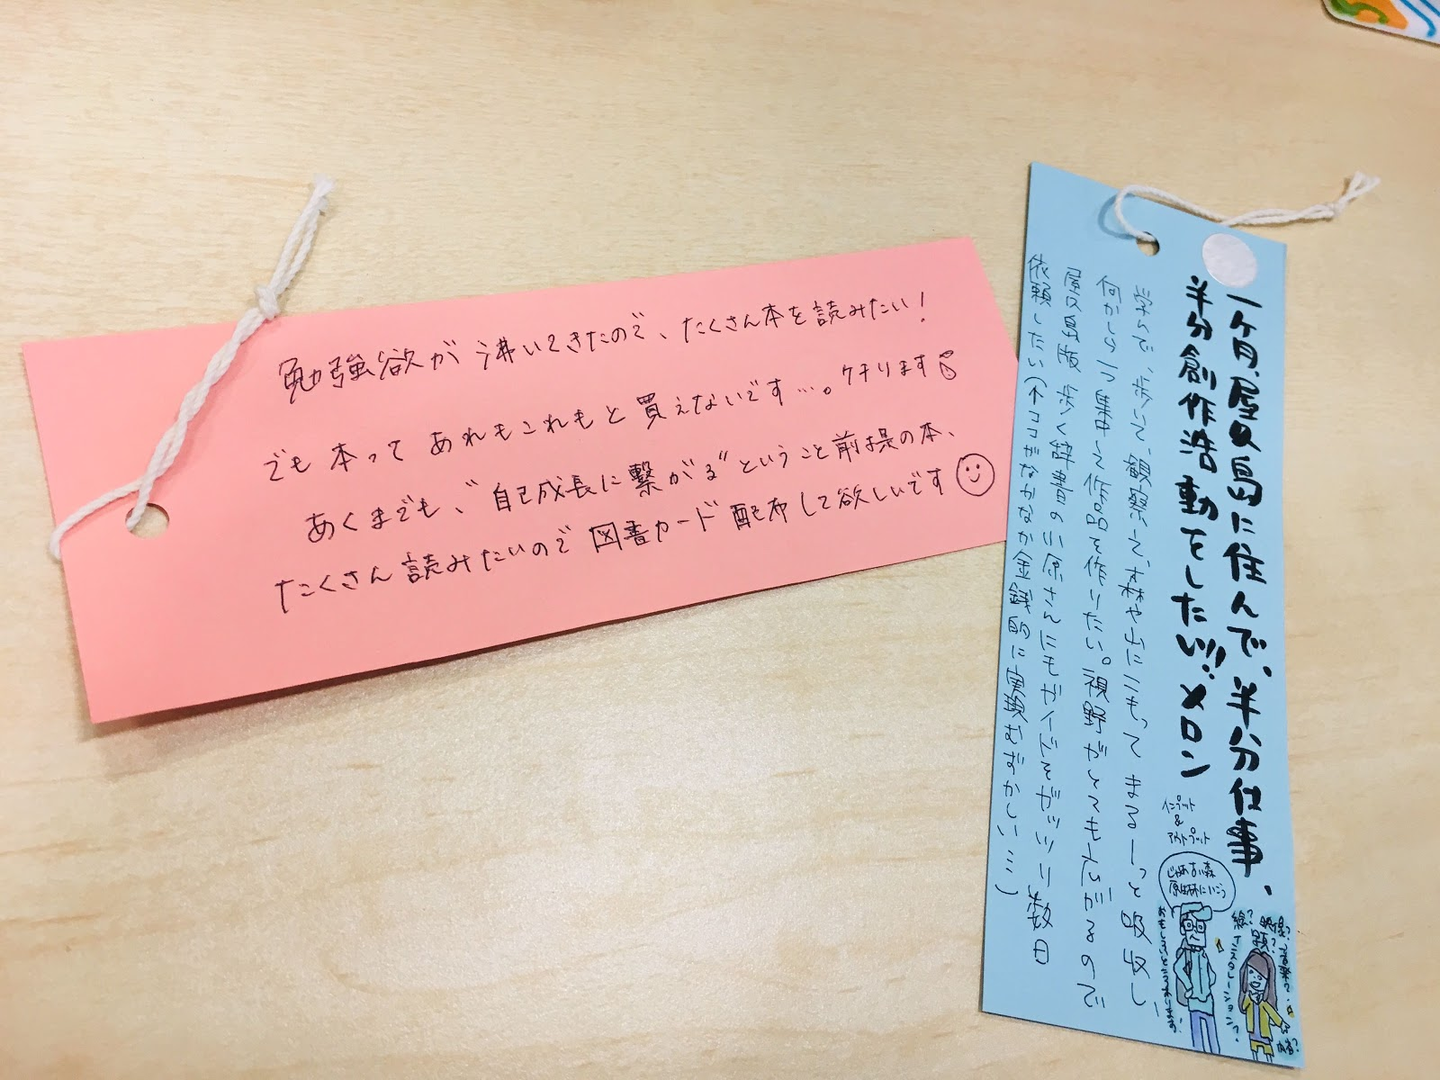 勉強欲が沸いてきたので、たくさん本を読みたい！
でも本って あれもこれもと買えないです…。ケチります
あくまでも、“自己成長に繋がる”ということ前提の本、
たくさん読みたいので 図書カード 配布して欲しいです
一ヶ月、屋久島に住んで、半分仕事、
半分創作活動をしたい!! メロン
歩いて、観察して、森や山にこもって まるーっと吸収し
何かしら一つ集中して作品を作りたい。視野がとても広がるので
屋久島版 歩く辞書の小原さんにもガイドをガッツリ数日
依頼したい（ココがなかなか金銭的に実現むずかしい…）
インプット
&
アウトプット
じゃあまぁ森
原生林にいこう
絵？
音楽？